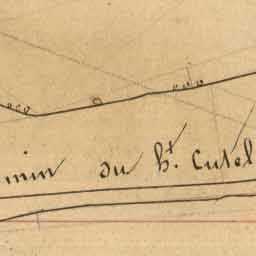 min du h.t Cutel